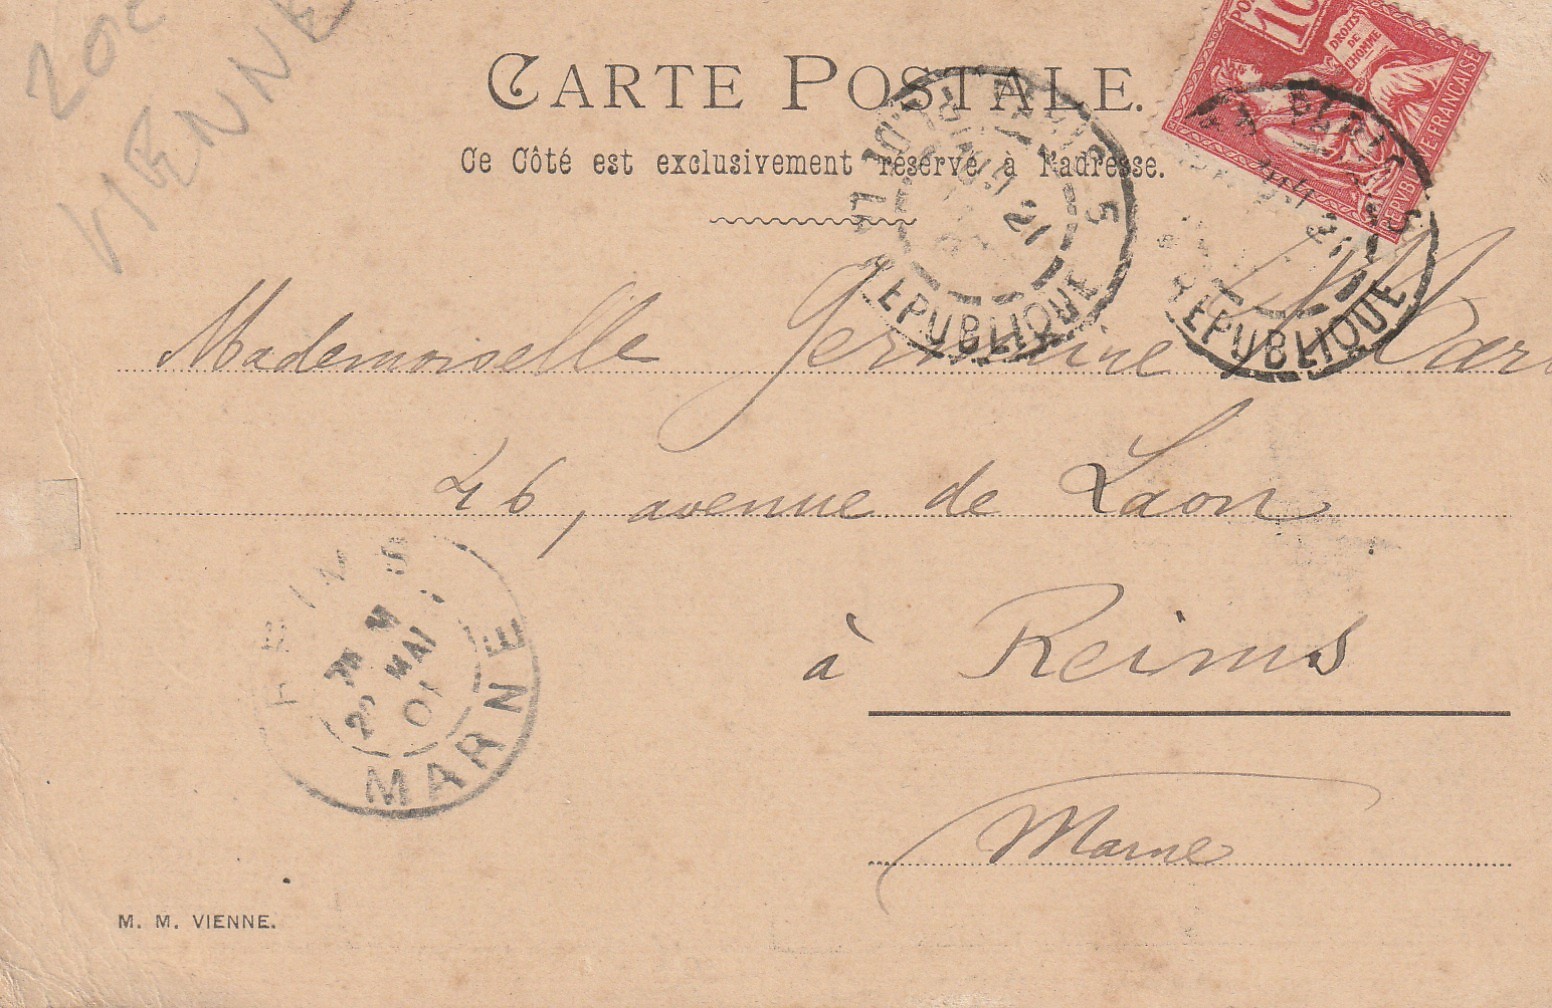 VIENNE
CARTE POSTALE.
Ce Côté est exclusivement réservé à l'adresse.
10
DROITS
DE
L'HOMME
REPUBLIQUE FRANÇAISE
PARIS 5
REPUBLIQUE
21
PARIS 5
REPUBLIQUE
21
Mademoiselle Germaine
46, avenue de Laon
à Reims
Marne
REIMS
MAI
01
MARNE
M. M. VIENNE.